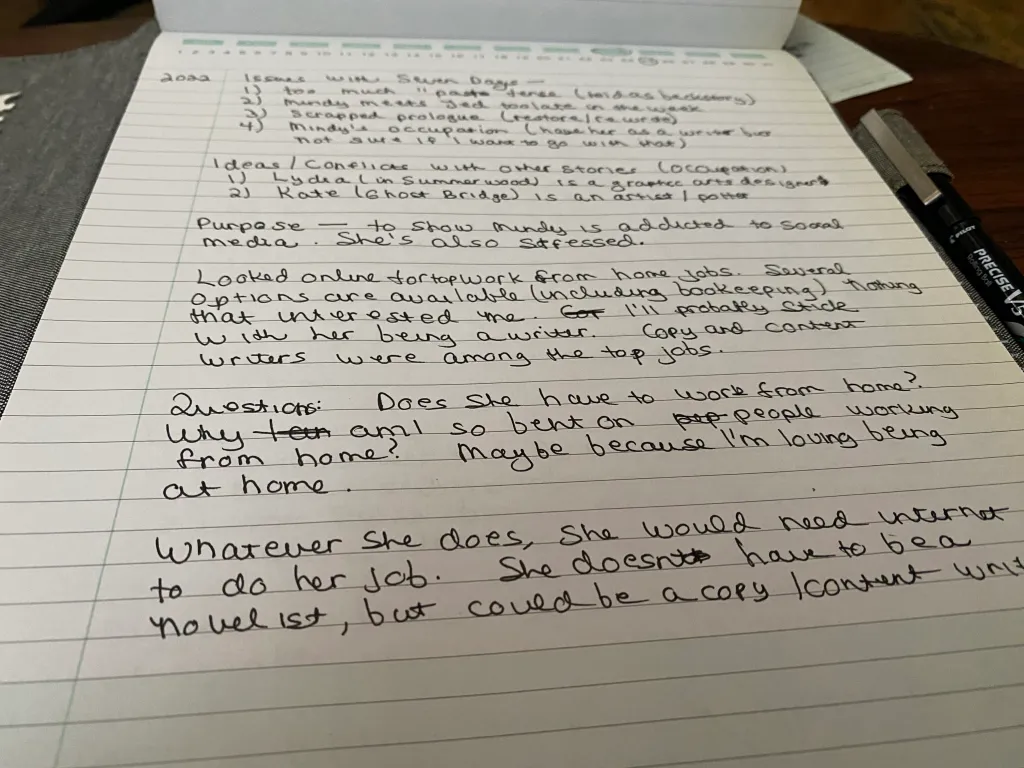 2022 Issues with Seven Days —
1) too much "past" tense (told as backstory)
2) Mindy meets Jed too late in the week
3) Scrapped prologue (restore/rewrite)
4) Mindy's occupation (have her as a writer but
not sure if I want to go with that)
Ideas/Conflicts with other stories (occupation)
1) Lydia (in Summerwood) is a graphic arts designer
2) Kate (Ghost Bridge) is an artist/potter
Purpose — to show Mindy is addicted to social
media. She's also stressed.
Looked online for top work from home jobs. Several
options are available (including bookeeping) Nothing
that interested me. I'll probably stick
with her being a writer. Copy and content
writers were among the top jobs.
Question: Does she have to work from home?
Why am I so bent on people working
from home? Maybe because I'm loving being
at home.
Whatever she does, she would need internet
to do her job. She doesn't have to be a
novelist, but could be a copy/content writ
PILOT
PRECISE V5